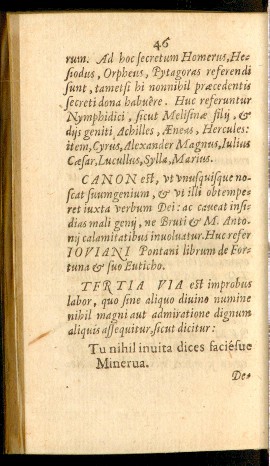 46
rum. Ad hoc secretum Homerus, He-
siodus, Orpheus, Pytagoras referendi
sunt, tametsi hi nonnihil præcedentis
secreti dona habuêre. Huc referuntur
Nymphidici, sicut Melisinæ filij, &
dijs geniti Achilles, Æneas, Hercules:
item, Cyrus, Alexander Magnus, Iulius
Cæsar, Lucullus, Sylla, Marius.
CANON est, vt vnusquisque no-
scat suum genium, & vt illi obtempe-
ret iuxta verbum Dei: ac caueat insi-
dias mali genij, ne Bruti & M. Anto-
nij calamitatibus inuoluatur. Huc refer
IOVIANI Pontani librum de For-
tuna & suo Euticho.
TERTIA VIA est improbus
labor, quo sine aliquo diuino numine
nihil magni aut admiratione dignum
aliquis assequitur, sicut dicitur:
Tu nihil inuita dices faciésue
Minerua.
De-